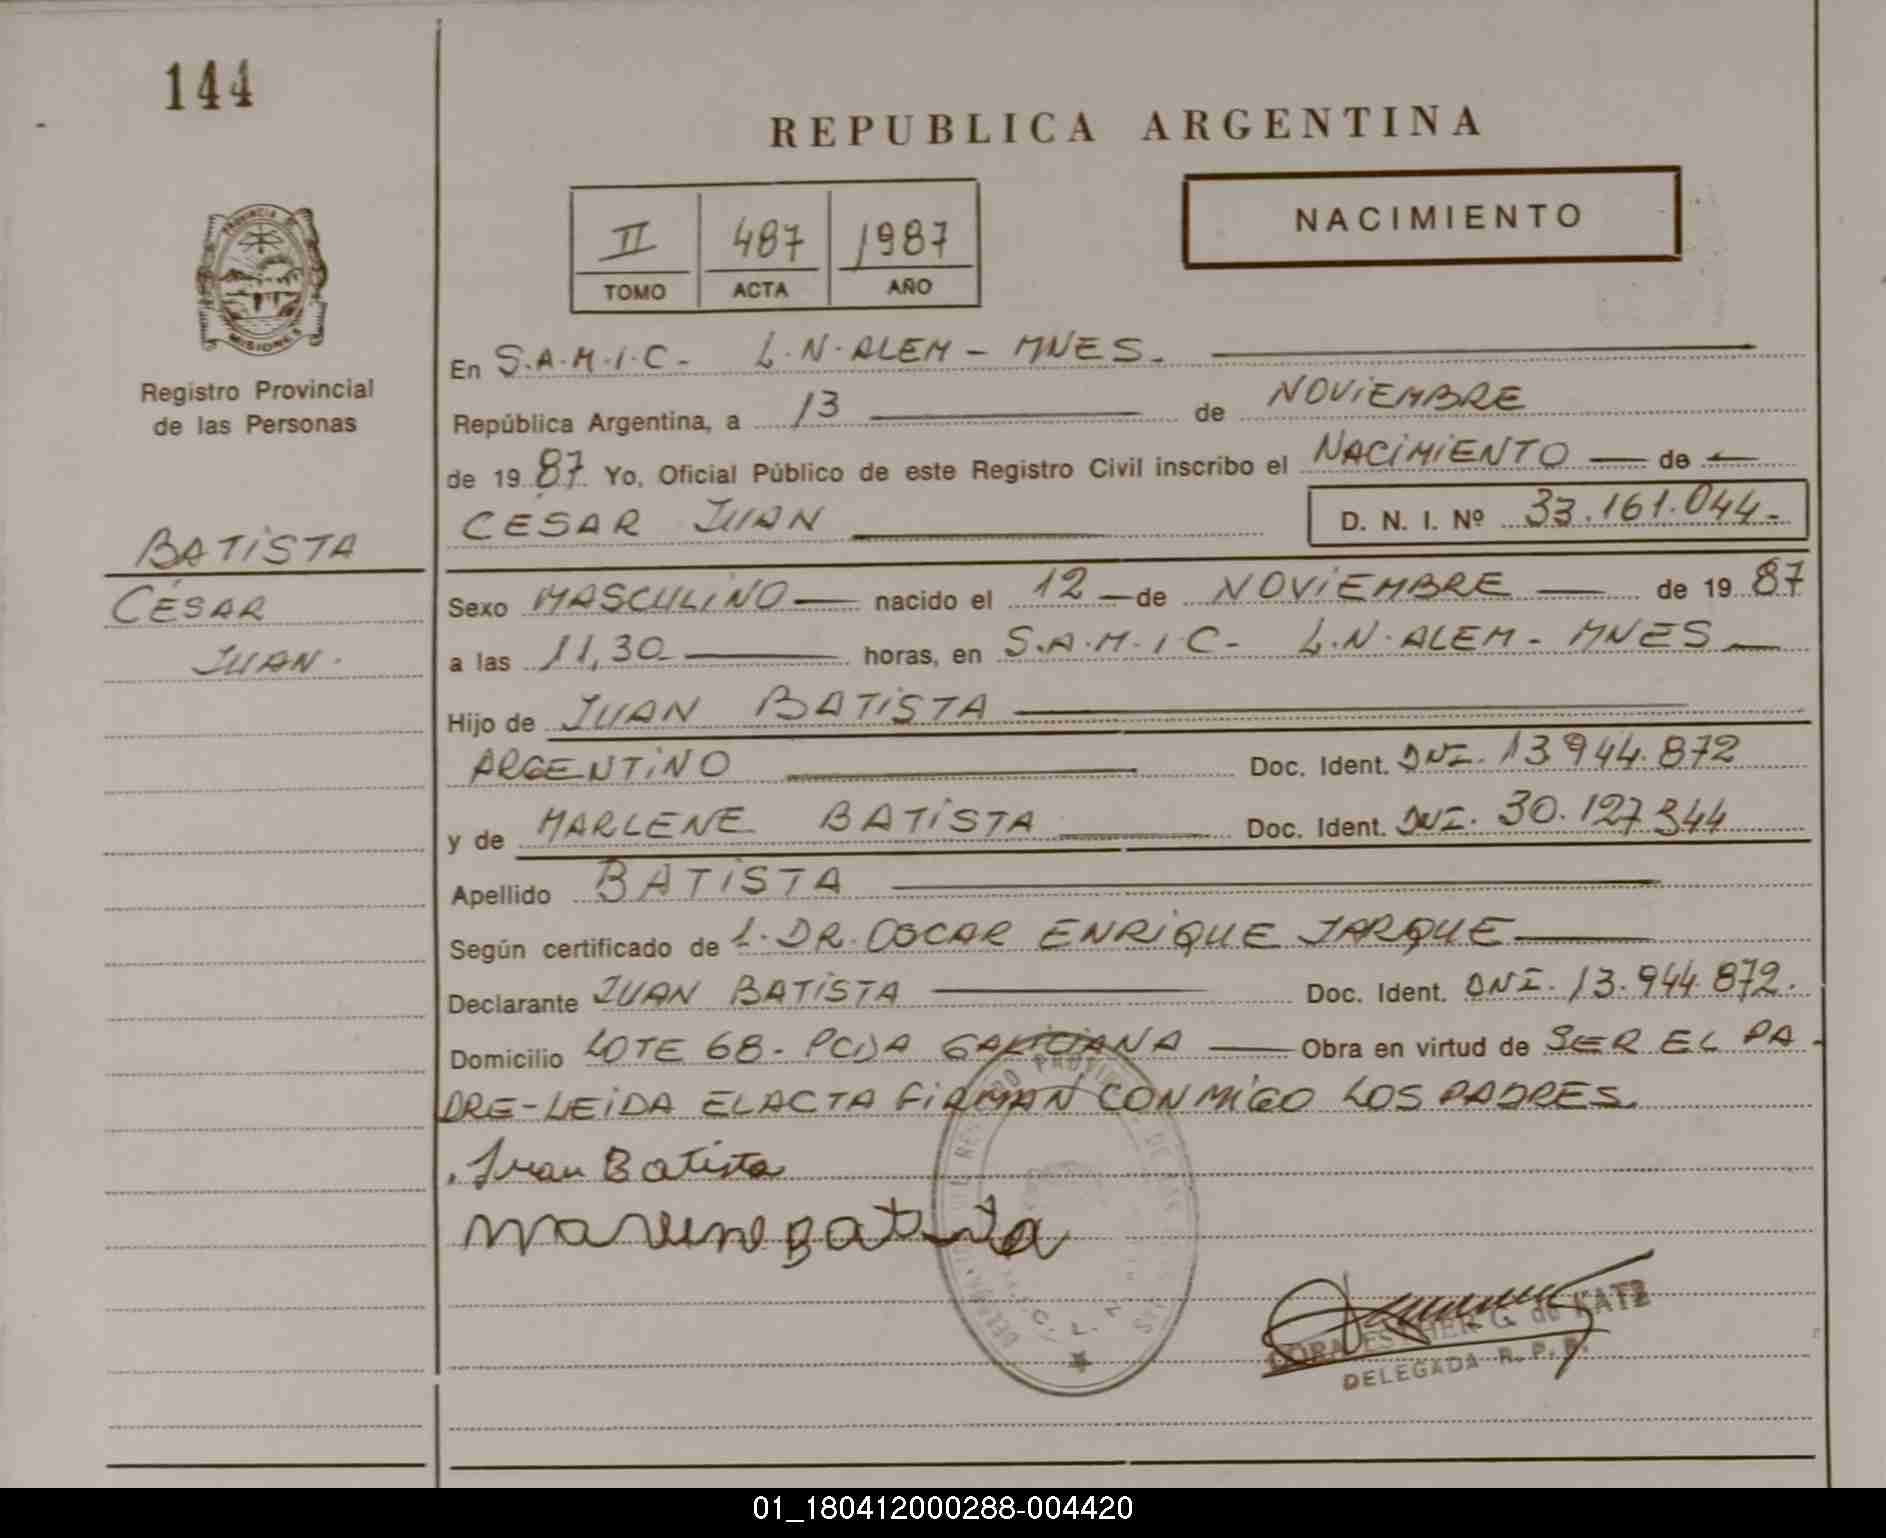 144
REPUBLICA ARGENTINA
NACIMIENTO
II 487 1987
TOMO ACTA AÑO
PROVINCIA DE
MISIONES
Registro Provincial
de las Personas
En S.A.M.I.C- L.N.ALEM - MNES.
República Argentina, a 13 de NOViEMBRE
de 19 87 Yo, Oficial Público de este Registro Civil inscribo el NACiMiENTO de
CESAR JUAN D. N. I. Nº 33.161.044-
BATiSTA
CÉSAR
JUAN.
Sexo MASCULiNO nacido el 12 de NOViEMBRE de 19 87
a las 11,30 horas, en S.A.M.I.C- L.N.ALEM - MNES
Hijo de JUAN BATiSTA
ARGENTiNO Doc. Ident. DNI. 13.944.872
y de MARLENE BATiSTA Doc. Ident. DNI. 30.127.344
Apellido BATiSTA
Según certificado de L. DR. OSCAR ENRiQUE JARQUE
Declarante JUAN BATiSTA Doc. Ident. DNI. 13.944.872.
Domicilio LOTE 68- PCDA GALiCiANA Obra en virtud de SER EL PA-
DRE-LEiDA EL ACTA FiRMAN CONMiGO LOS PADRES.
Juan Batista
Marlene Batista
ESTHER G. de KATZ
DELEGADA R. P. P.
01_180412000288-004420